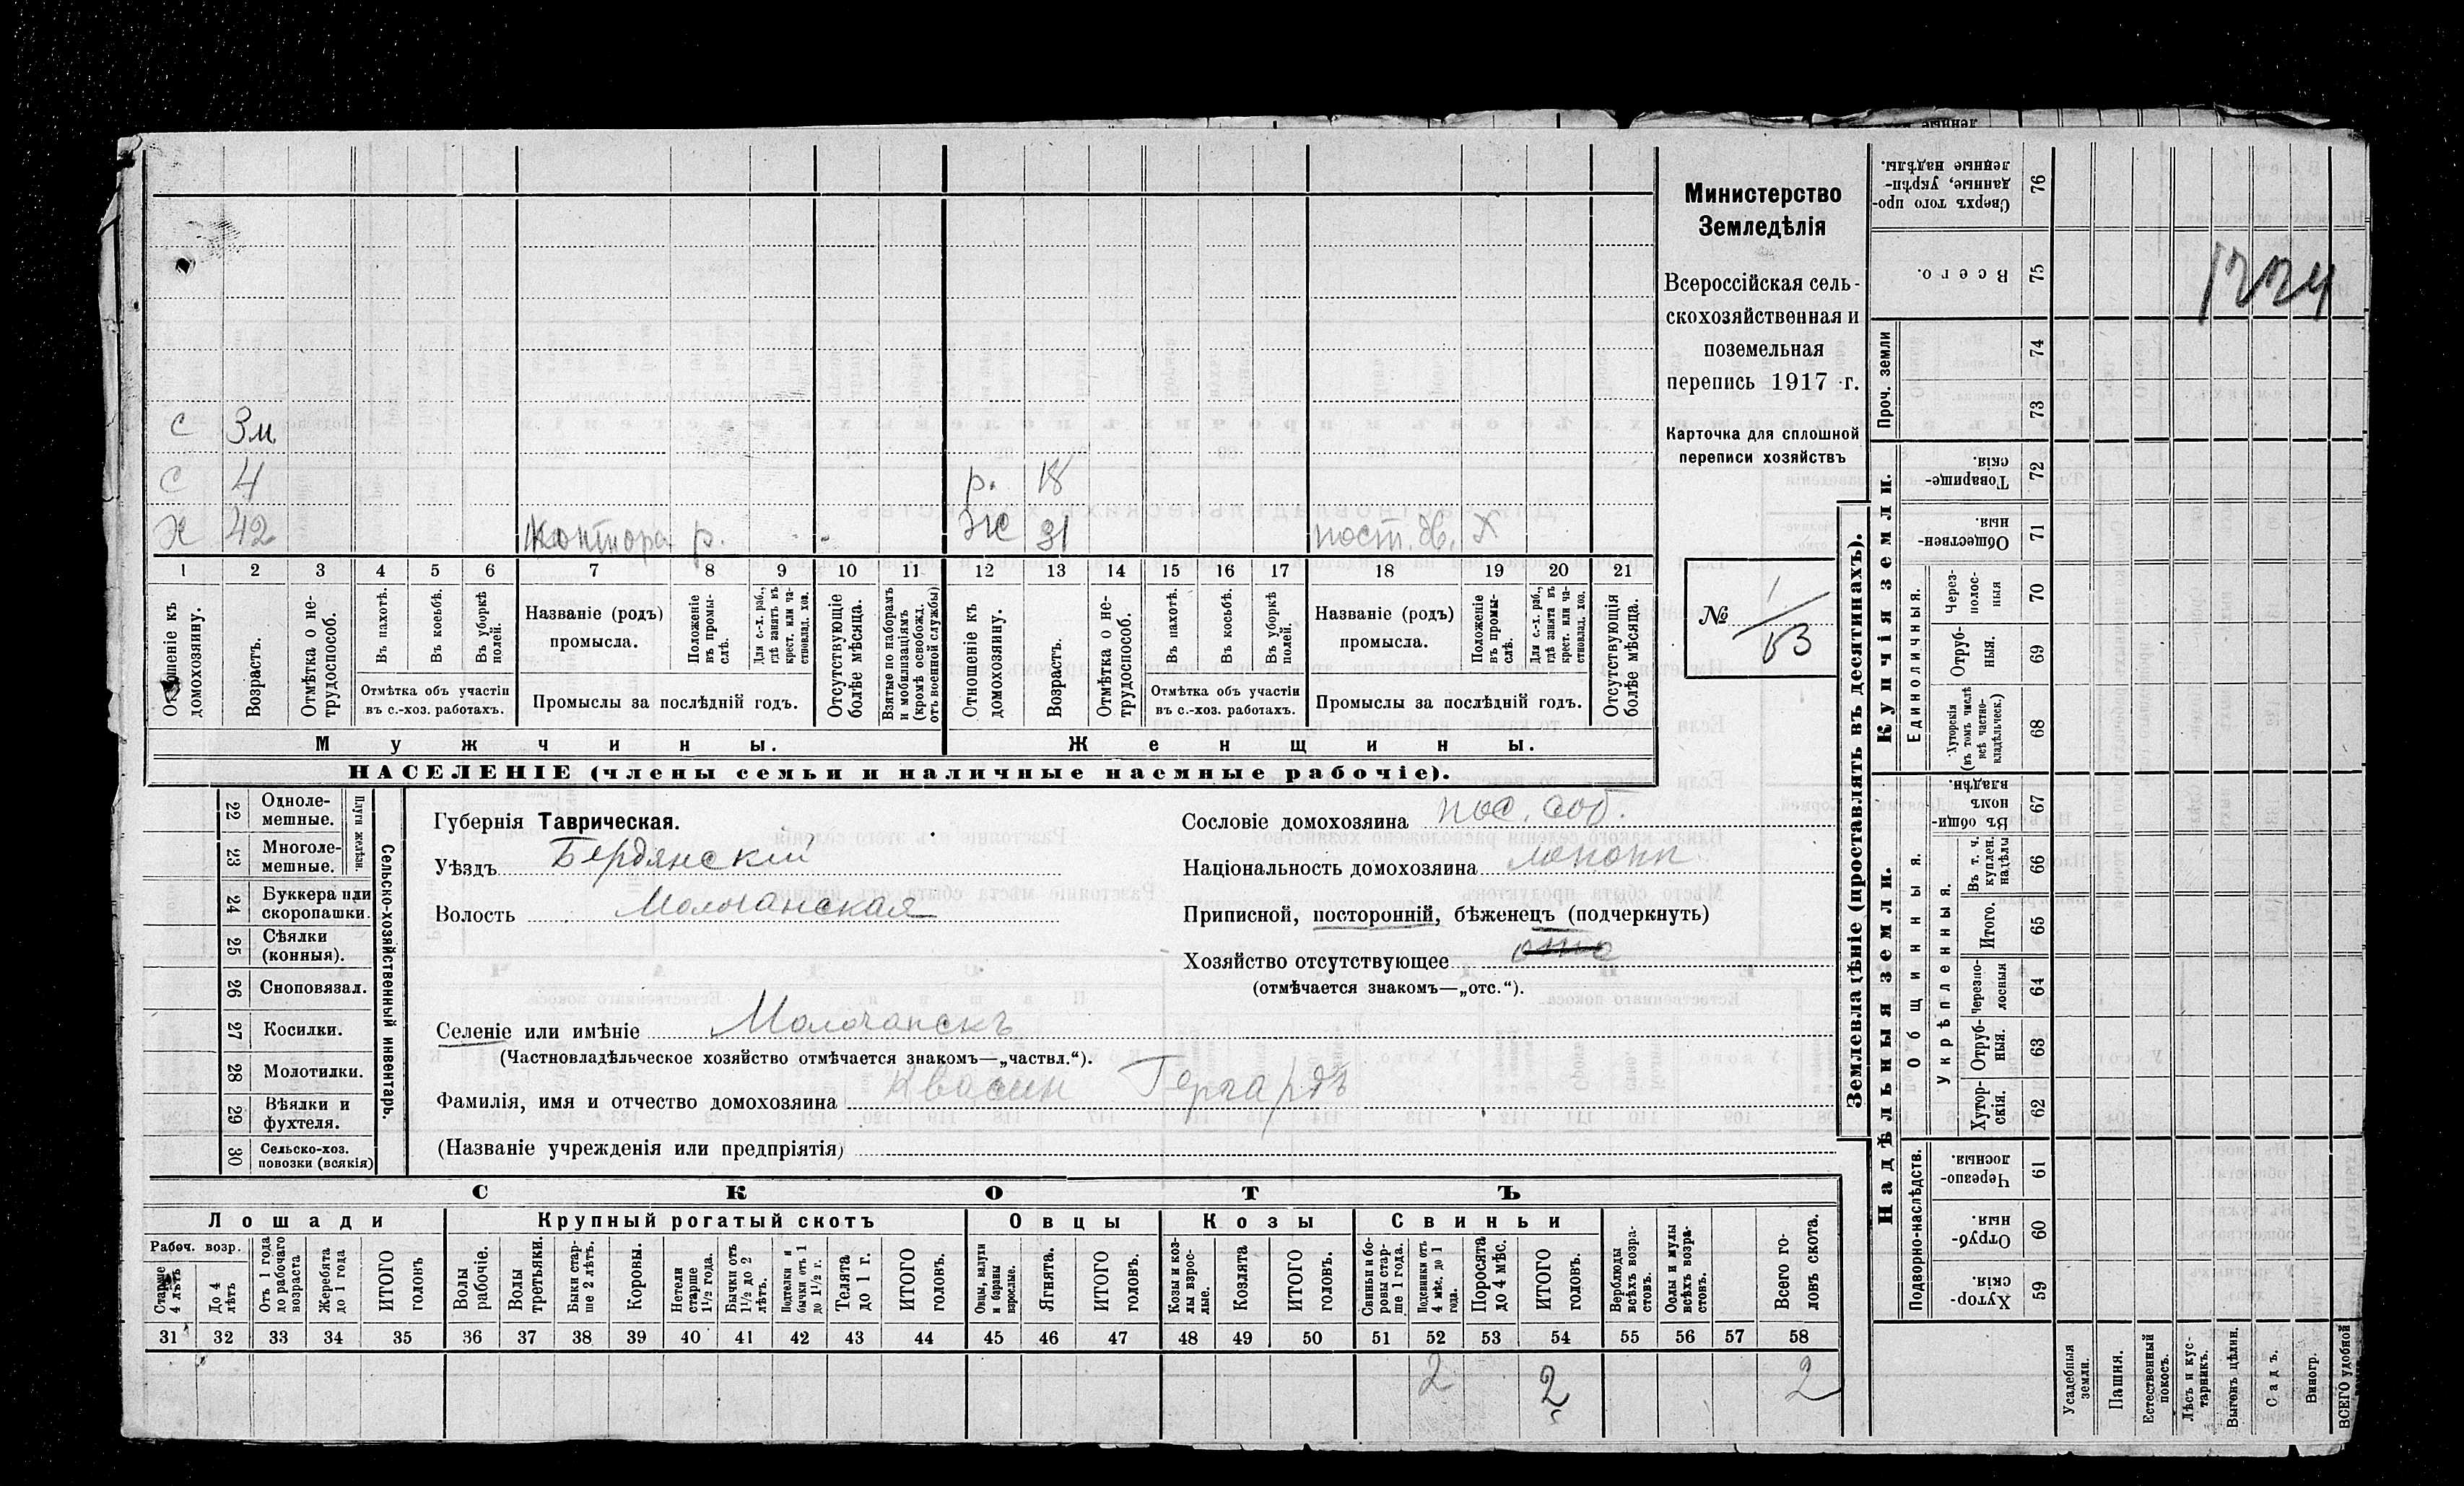 Министерство
Земледѣлія
Всероссійская сель-
скохозяйственная и
поземельная
перепись 1917 г.
Карточка для сплошной
переписи хозяйствъ
№ 1/53
С 3м
С 4 р. 18
Х 42 Контора р. Ж 31 пост. дв. Х
1 2 3 4 5 6 7 8 9 10 11 12 13 14 15 16 17 18 19 20 21
Отношеніе къ домохозяину.
Возрастъ.
Отмѣтка о не-трудоспособ.
Въ пахотѣ.
Въ косьбѣ.
Въ уборкѣ полей.
Отмѣтка объ участіи
въ с.-хоз. работахъ.
Названіе (родъ)
промысла.
Положеніе въ промы-слѣ.
Для с.-х. раб., гдѣ занятъ въ крест. или ча-стновлад. хоз.
Промыслы за послѣдній годъ.
Отсутствующіе болѣе мѣсяца.
Взятые по наборамъ и мобилизаціямъ (кромѣ освобожд. отъ военной службы)
Отношеніе къ домохозяину.
Возрастъ.
Отмѣтка о не-трудоспособ.
Въ пахотѣ.
Въ косьбѣ.
Въ уборкѣ полей.
Отмѣтка объ участіи
въ с.-хоз. работахъ.
Названіе (родъ)
промысла.
Положеніе въ промы-слѣ.
Для с.-х. раб., гдѣ занята въ крест. или ча-стновлад. хоз.
Промыслы за послѣдній годъ.
Отсутствующія болѣе мѣсяца.
Мужчины.
Женщины.
НАСЕЛЕНІЕ (члены семьи и наличные наемные рабочіе).
22 Одноле-мешные.
23 Многоле-мешные.
Плуги желѣзн.
24 Буккера или скоропашки.
25 Сѣялки (конныя).
26 Сноповязал.
27 Косилки.
28 Молотилки.
29 Вѣялки и фухтеля.
30 Сельско-хоз. повозки (всякія)
Сельско-хозяйственный инвентарь.
Губернія Таврическая.
Уѣздъ Бердянскій
Волость Молочанская
Сословіе домохозяина пос. соб.
Національность домохозяина
Приписной, посторонній, бѣженецъ (подчеркнуть)
Хозяйство отсутствующее отс
(отмѣчается знакомъ—„отс.“).
Селеніе или имѣніе Молочанскъ
(Частновладѣльческое хозяйство отмѣчается знакомъ—„частвл.“).
Фамилія, имя и отчество домохозяина Квасин Гергардъ
(Названіе учрежденія или предпріятія)
СКОТЪ
Лошади
Крупный рогатый скотъ
Овцы
Козы
Свиньи
Рабоч. возр.
Старше 4 лѣтъ
До 4 лѣтъ
Отъ 1 года до рабочаго возраста
Жеребята до 1 года
ИТОГО головъ
Волы рабочіе.
Волы третьяки.
Быки стар-ше 2 лѣтъ.
Коровы.
Нетели старше 1½ года.
Бычки отъ 1½ до 2 лѣтъ.
Подтелки и бычки отъ 1 до 1½ г.
Телята до 1 г.
ИТОГО головъ.
Овцы, валухи и бараны взрослые.
Ягнята.
ИТОГО головъ.
Козы и коз-лы взрос-лые.
Козлята
ИТОГО головъ.
Свиньи и бо-ровы стар-ше 1 года.
Подсвинки отъ 4 мѣс. до 1 года.
Поросята до 4 мѣс.
ИТОГО головъ.
Верблюды всѣхъ возра-стовъ.
Ослы и мулы всѣхъ возра-стовъ.
Всего го-ловъ скота.
31 32 33 34 35 36 37 38 39 40 41 42 43 44 45 46 47 48 49 50 51 52 53 54 55 56 57 58
2 2 2
Землевладѣніе (проставлять въ десятинахъ).
Сверхъ того про-данные, укрѣп-ленные надѣлы. 76
Всего. 75
Проч. земли
74
73
Купчія земли.
Товарище-скія. 72
Обществен-ныя. 71
Единоличныя.
Через-полос-ныя 70
Отруб-ныя. 69
Хуторскія (въ томъ числѣ всѣ частно-владѣльческ.) 68
Надѣльныя земли.
Общинныя.
Въ общи-номъ владѣн. 67
Укрѣпленныя.
Въ т. ч. куплен. надѣлы 66
Итого. 65
Черезпо-лосныя 64
Отруб-ныя. 63
Хутор-скія. 62
Подворно-наслѣдств.
Черезпо-лосныя. 61
Отруб-ныя. 60
Хутор-скія. 59
Усадебныя земли.
Пашня.
Естественный покосъ.
Лѣсъ и кус-тарникъ.
Выгонъ цѣлин.
Садъ.
Виногр.
ВСЕГО удобной